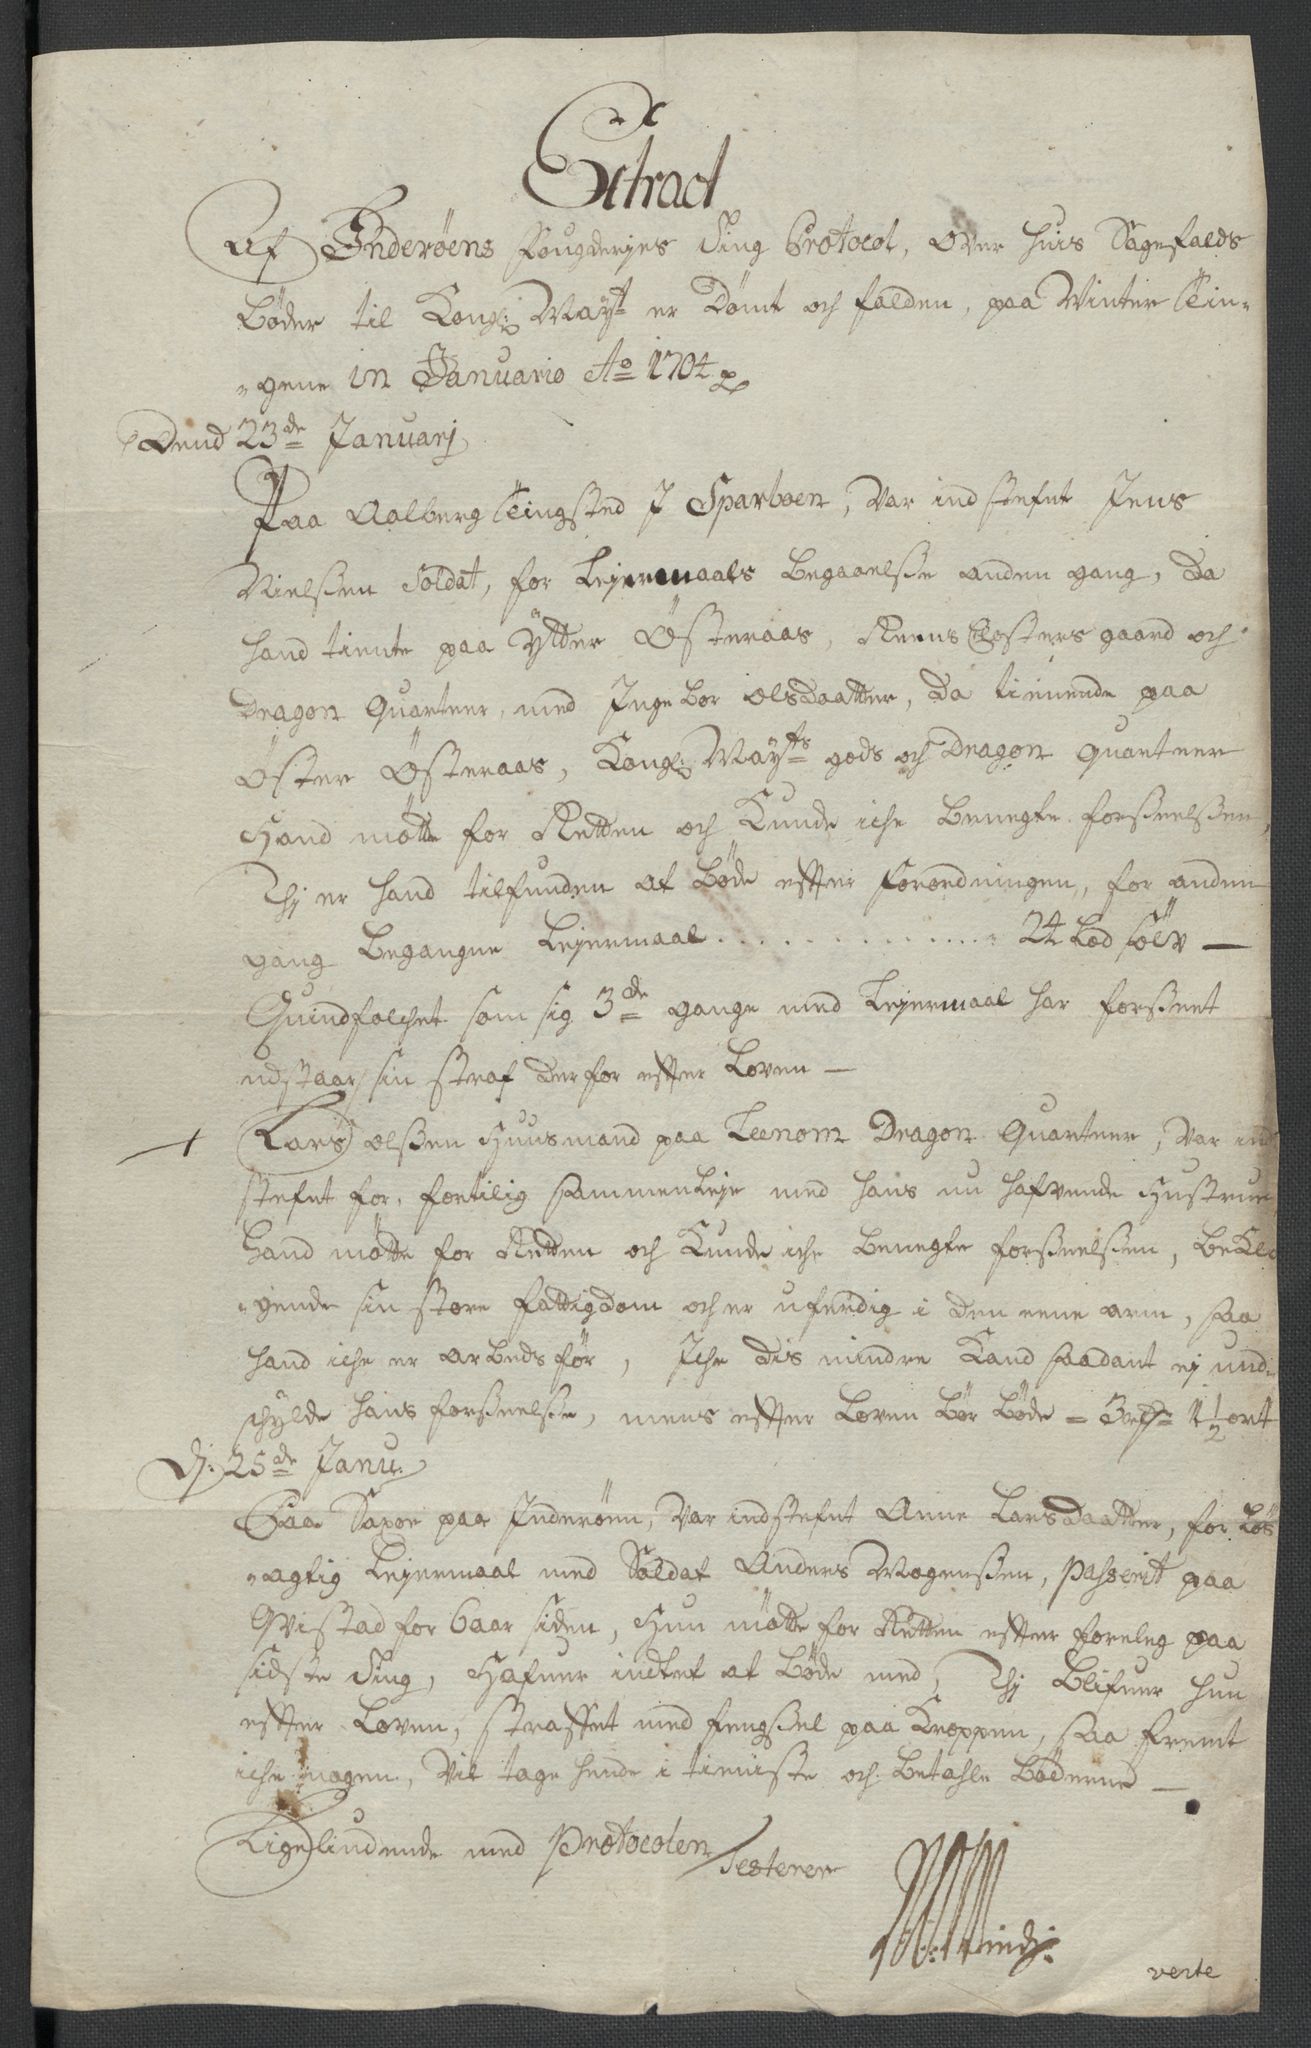 Extract
Af Inderöens Fougderjes Ting Protocol, Over huis Sagefalds
Böder til Kongl: Mayt er Dömt och falden, paa Winter Tin-
gene in Januario Ao 1704
Dend 23de Januarj
Paa Aalberg Tingsted J Sparboen, Var ind stefnt Jens
Nielsen Soldat, for Lejermaals Begaaelse anden gang, Da
hand tiente paa Ytter Österaas, Reens Closters gaard och
Dragon Quarteer, med Ingebor Olsdaatter, Da tienende paa
Öster Österaas, Kongl: Mayts gods och Dragon Quarteer
Hand mötte for Retten och Kunde iche Benegte forseelsen,
Thj er hand tilfunden at Böde effter forordningen, for anden
gang Begangne Lejermaal . . . . . . . . . . . . . 24 Lod sölv —
Quindfolchet som sig 3de gange med Lejermaal har forseet
udstaar sin straf derfor effter Loven —
Lars Olsen Huusmand paa Leenom Dragon Quarteer, Var ind
stefnt for, fortilig sammenleje med hans nu hafvende Hustrue
Hand mötte for Retten och Kunde iche Benegte forseelsen, beKla
gende sin store fattigdom och er uferdig i den eene arm, saa
hand iche er arbeds för, Iche dis mindre Kand saadant ej und-
schylde hans forseelse, mens effter Loven Bör Böde = 3 1½ ort
Dj: 25de Janu:
Paa Saxor paa Inderöen, Var indstefnt Anne Larsdaatter, for Lös
agtig Lejermaal med Soldat Anders Mogensen, passerit paa
Qvistad for 6 aar siden, Hun mötte for Retten effter foreleg paa
sidste Ting, Hafuer indtet at Böde med, Thj Blifuer hun
effter Loven, straffet med fengsel paa Kroppen, saa fremt
iche nogen, Vil tage hende i tieniste och Betahle Böderne —
Ligelindende med Protocolen Testerer
verte